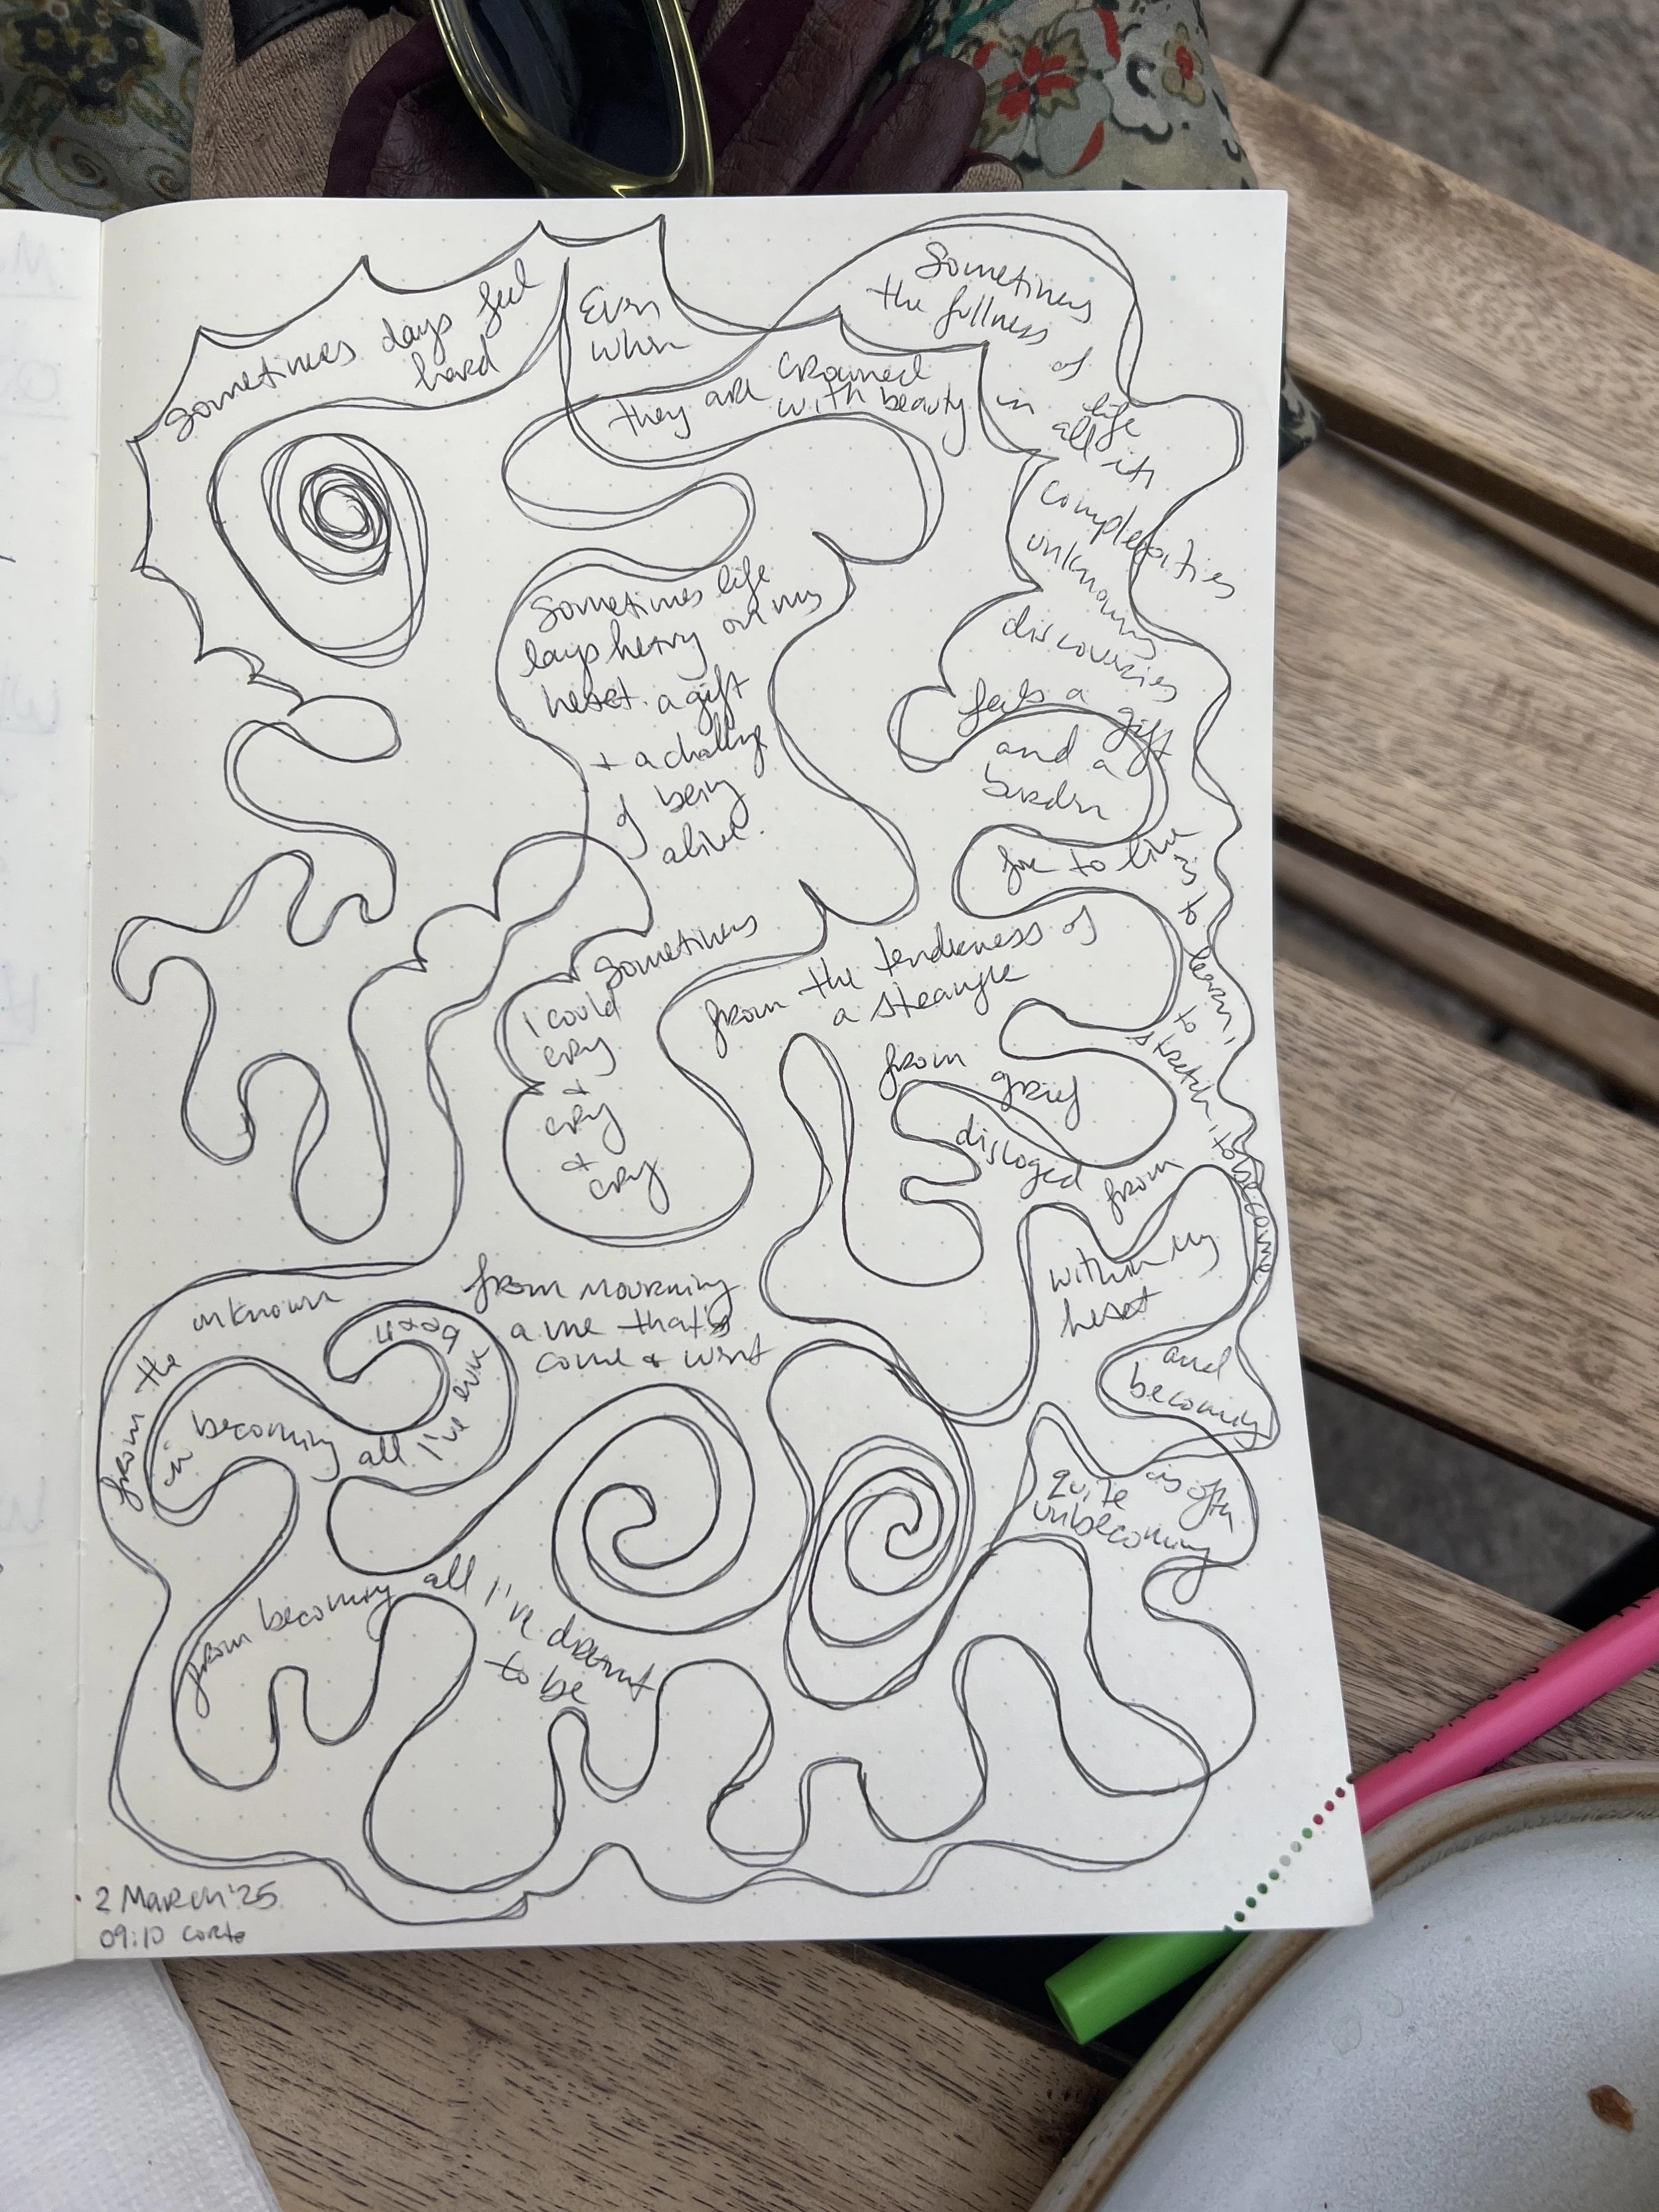 Sometimes days feel
hard
Even
when
they are crowned
with beauty
Sometimes life
lays heavy on my
heart. a gift
+ a challenge
of being
alive.
Sometimes
I could
cry
+
cry
+ cry
from the tenderness of
a stranger
from
grief
disloged
from
within my
heart
from mourning
a me that's
come + went
from the
unknown
in becoming
all I've ever
been
from becoming
all I've dreamt
to be
Sometimes
the fullness
of
life
in all its
complexities
unknowing
discoveries
feels a gift
and a
burden
for to live
is to learn,
to stretch, to become
and
becoming
is often
quite
unbecoming
2 March '25
09:10